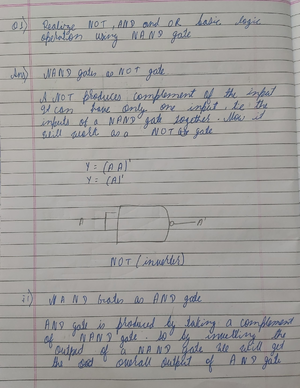 Q1) Realize NOT, AND and OR basic logic
operation using NAND gate
Ans) NAND gates as NOT gate
A NOT produces complement of the input
It can have only one input. tie the
inputs of a NAND gate together. Now it
will work as a NOT gate
Y = (A A)'
Y = (A)'
A A'
NOT (inverter)
ii) NAND Gates as AND gate
AND gate is produced by taking a complement
of NAND gate. So by inverting the
output of a NAND gate We will get
the overall output of AND gate